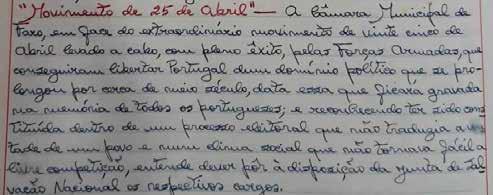 "Movimento de 25 de Abril" — A Câmara Municipal de
Faro, em face do extraordinário movimento de vinte cinco de
Abril levado a cabo, com pleno êxito, pelas Forças Armadas, que
conseguiram libertar Portugal dum domínio político que se pro-
longou por cerca de meio século, data essa que ficará gravada
na memória de todos os portugueses; e reconhecendo ter sido cons
tituída dentro de um processo eleitoral que não traduzia a von
tade de um povo e num clima social que não tornava fácil a
livre competição, entende dever pôr à disposição da Junta de Sal-
vação Nacional os respectivos cargos.